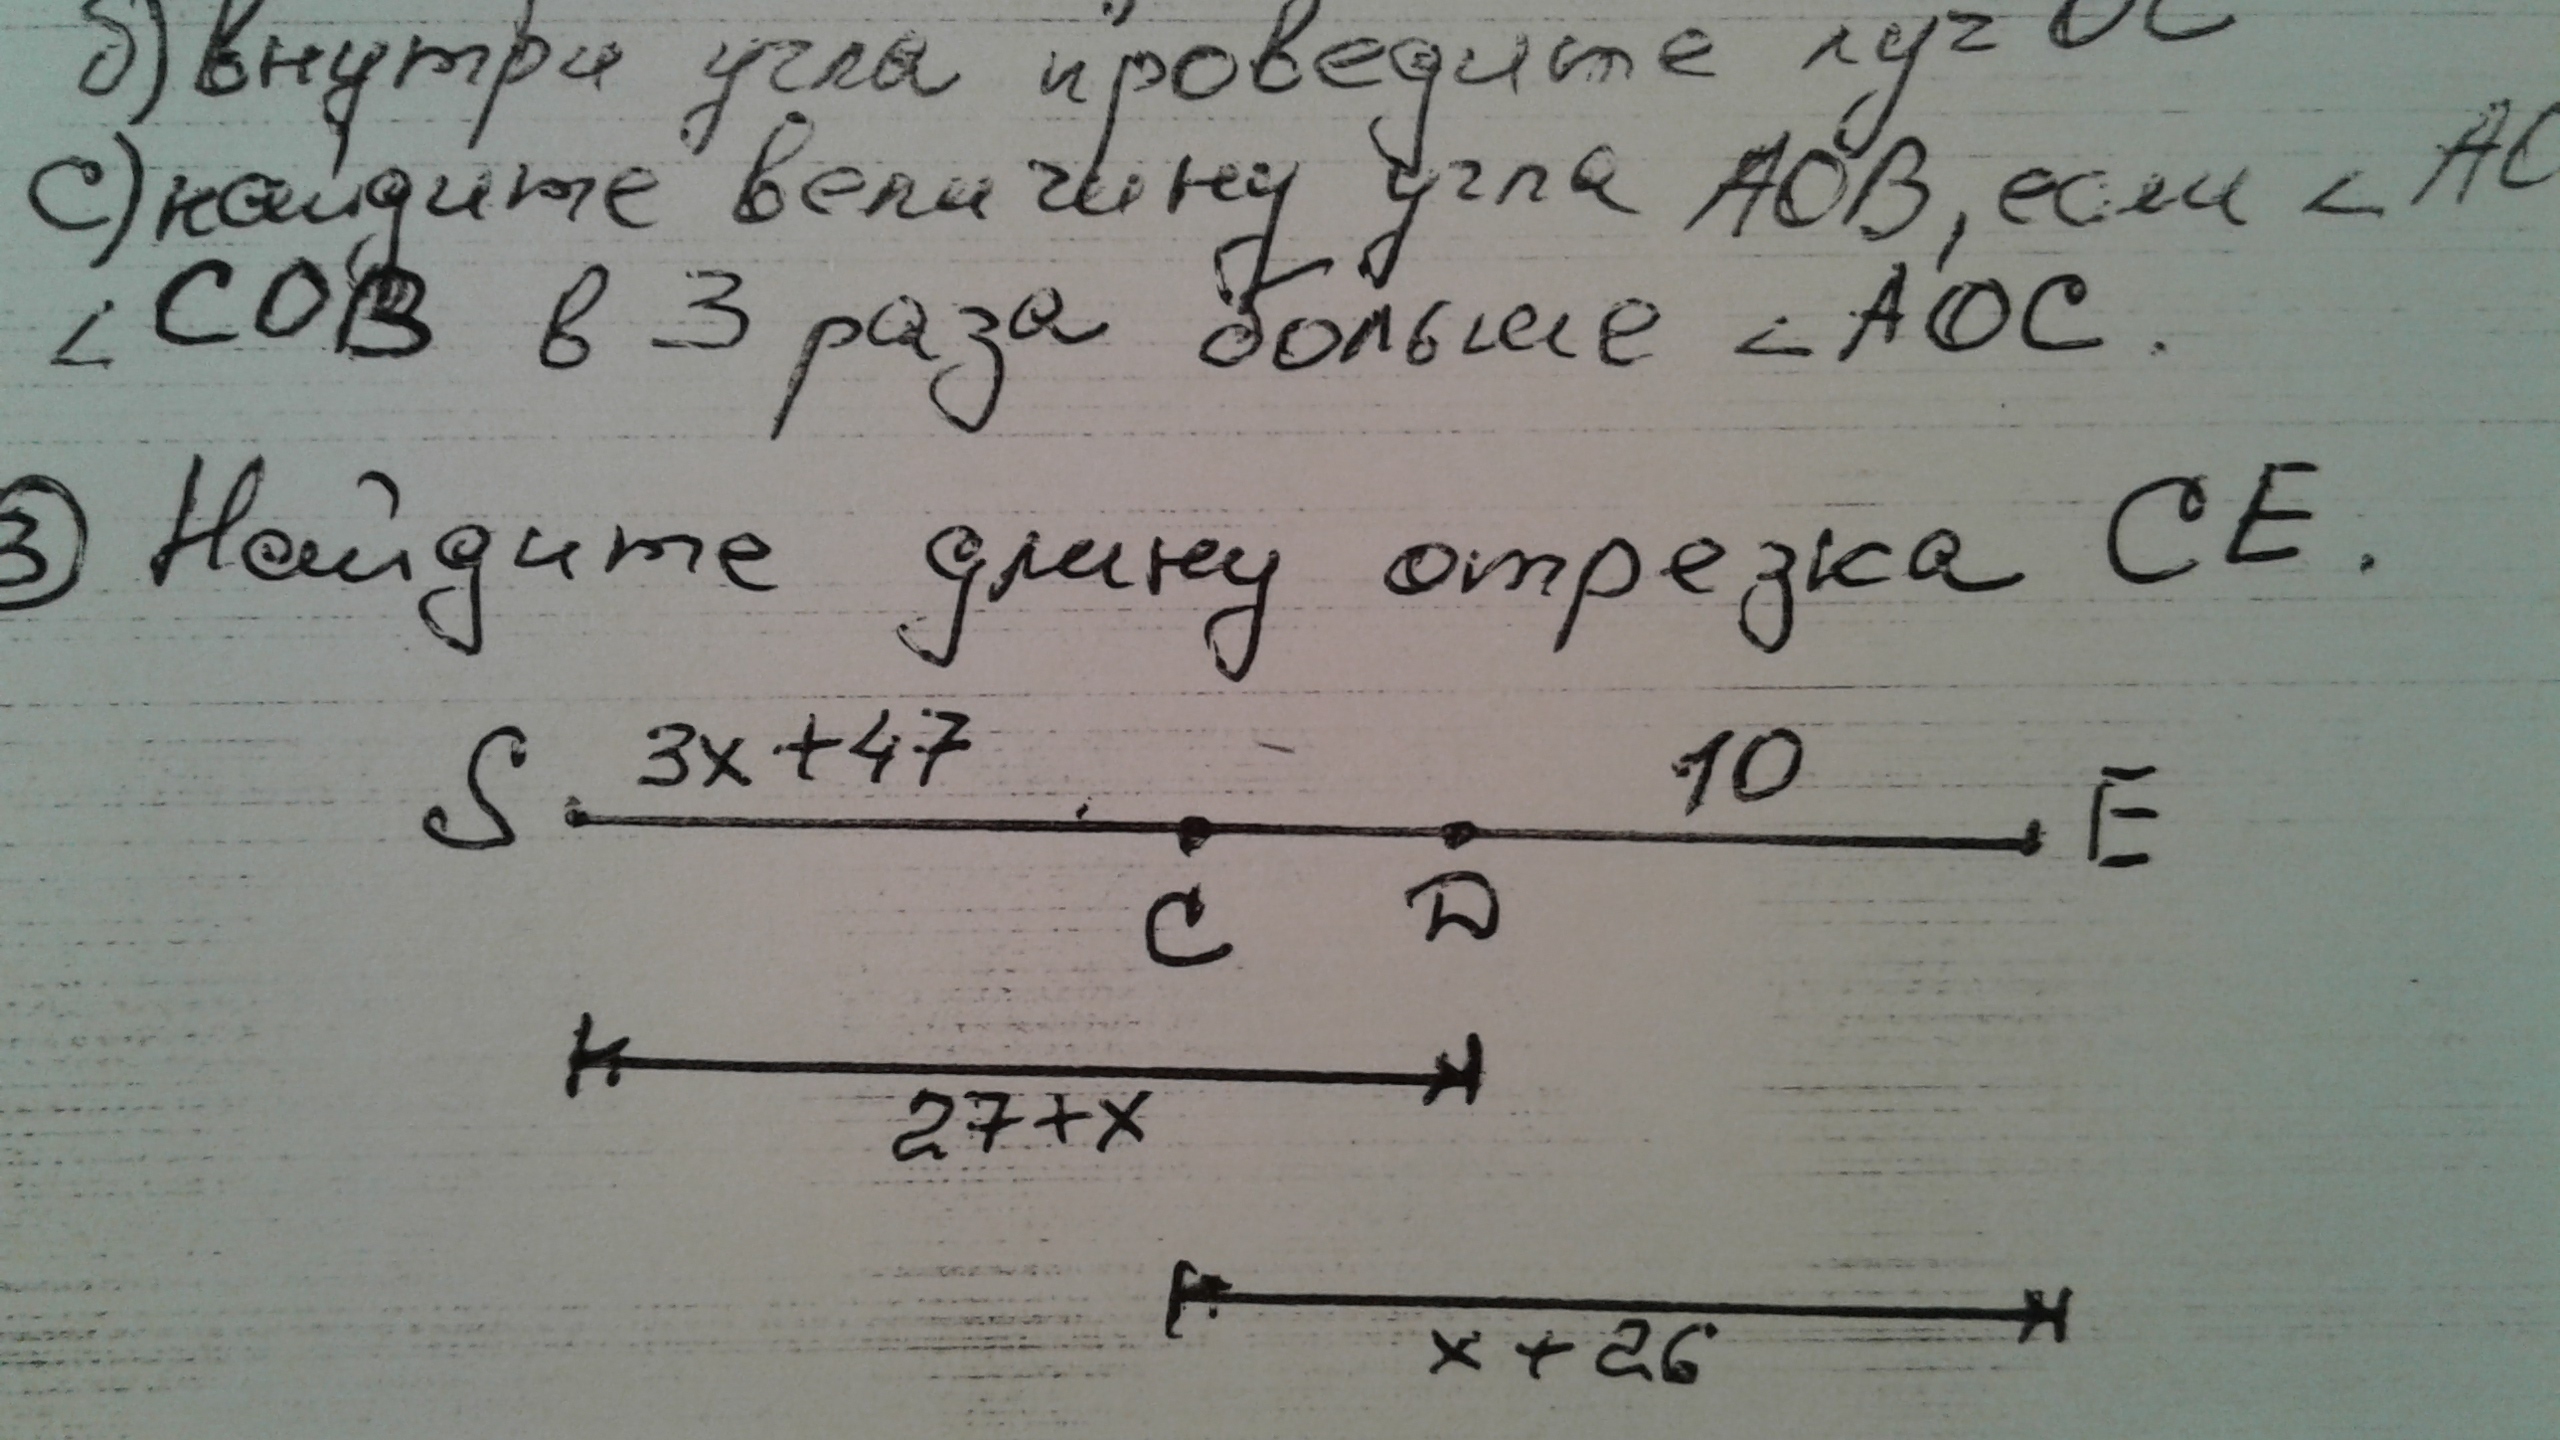 б) внутри угла проведите луч OC
c) найдите величину угла AOB, если ∠AO
∠COB в 3 раза больше ∠AOC.
3) Найдите длину отрезка CE.
3x+47 10
S E
C D
27+x
x+26